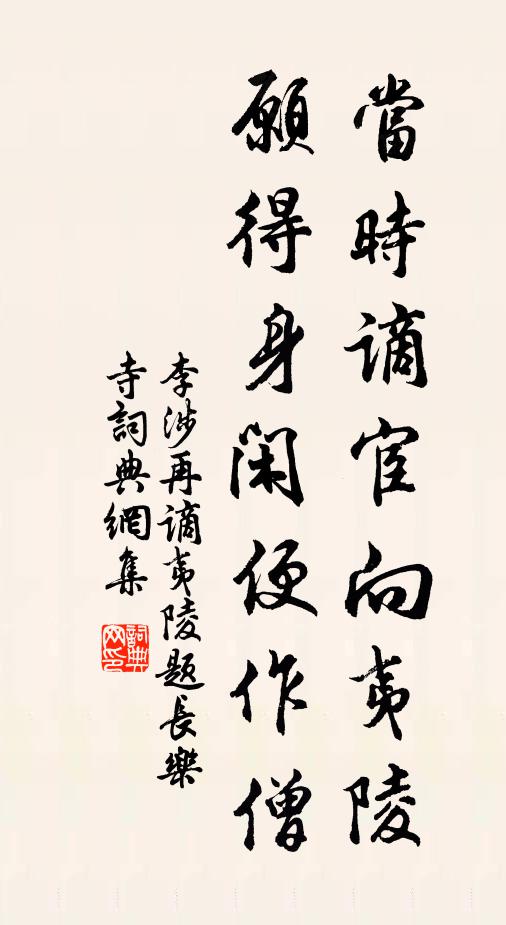 當時謫宦向夷陵
願得身閑便作僧
李涉再謫夷陵題長樂
寺詞典網集
詞典網印